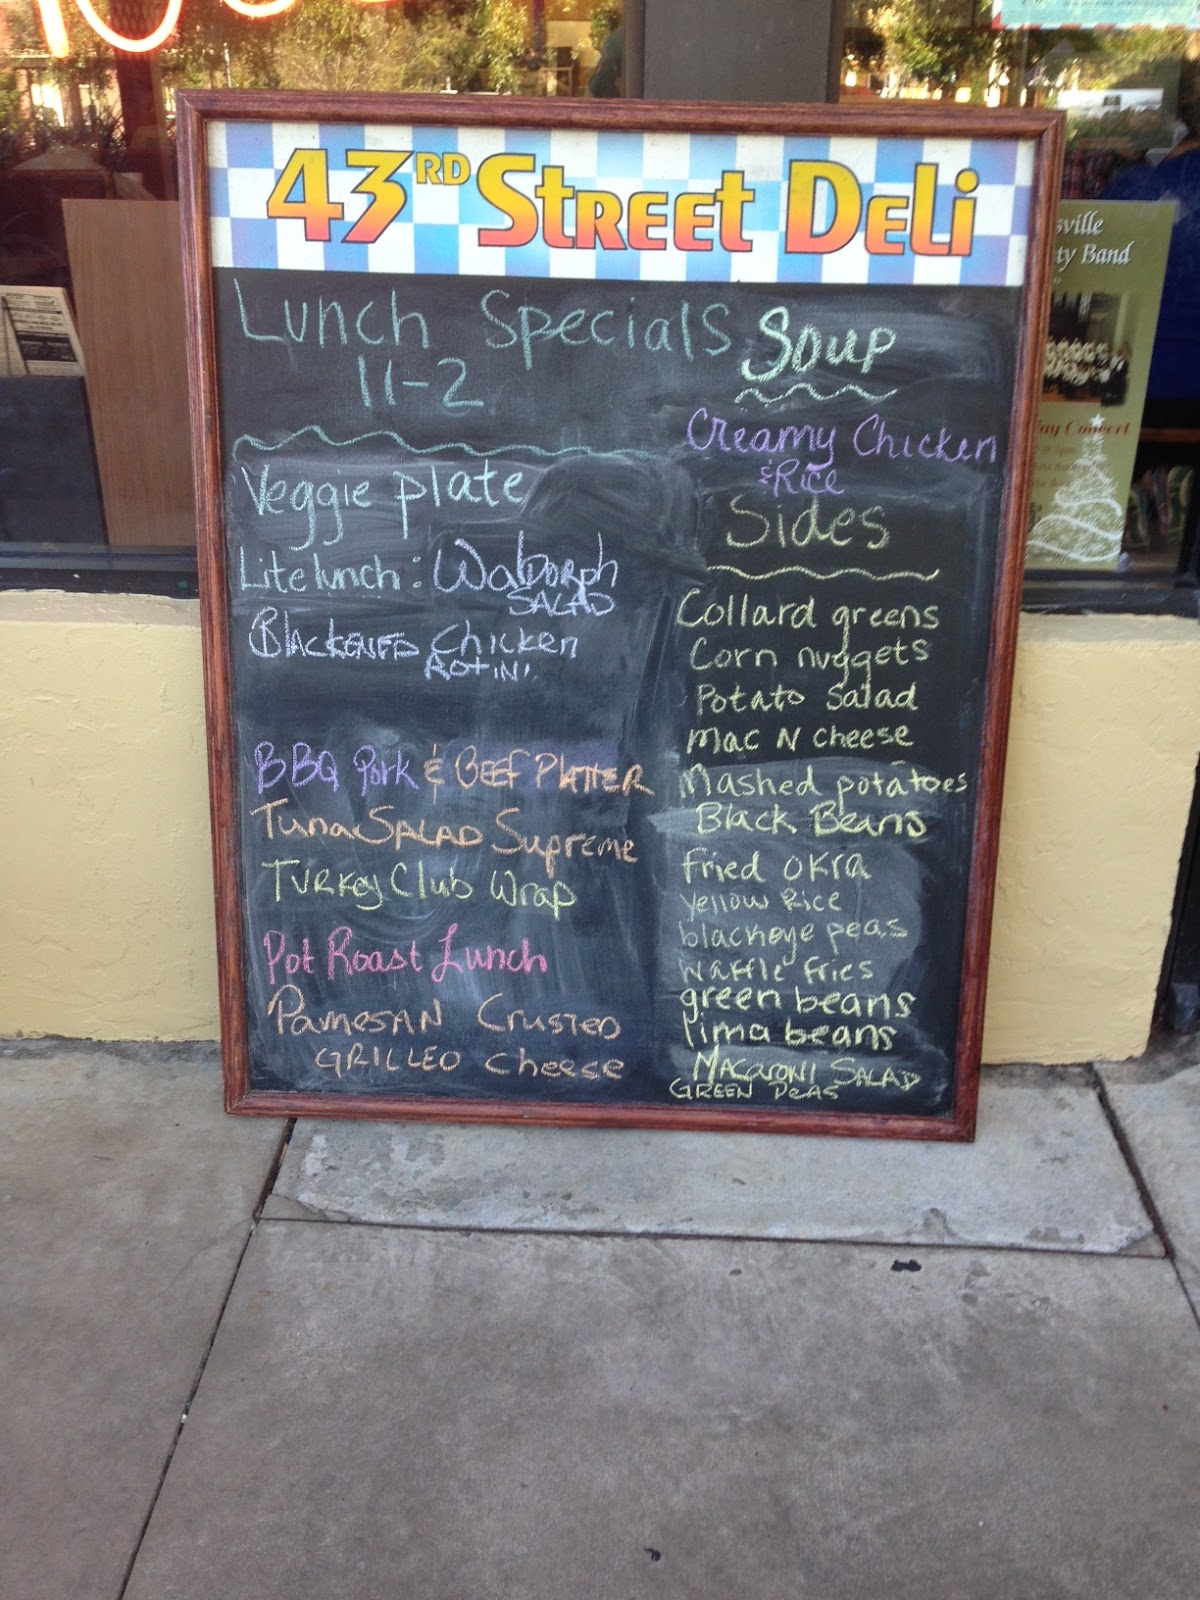 43RD Street Deli
Lunch Specials
11-2
Veggie plate
Lite lunch: Waldorph
SALAD
BLACKENED Chicken
ROTINI
BBQ Pork & BEEF PLATTER
Tuna SALAD Supreme
TURKEY Club Wrap
Pot Roast Lunch
PARMESAN CRUSTED
GRILLED cheese
Soup
Creamy Chicken
& Rice
Sides
Collard greens
Corn nuggets
Potato Salad
Mac N cheese
Mashed potatoes
Black Beans
fried OKRA
yellow Rice
blackeye peas
waffle fries
green beans
lima beans
MACARONI SALAD
GREEN PeAS
sville
ty Band
ay Concert